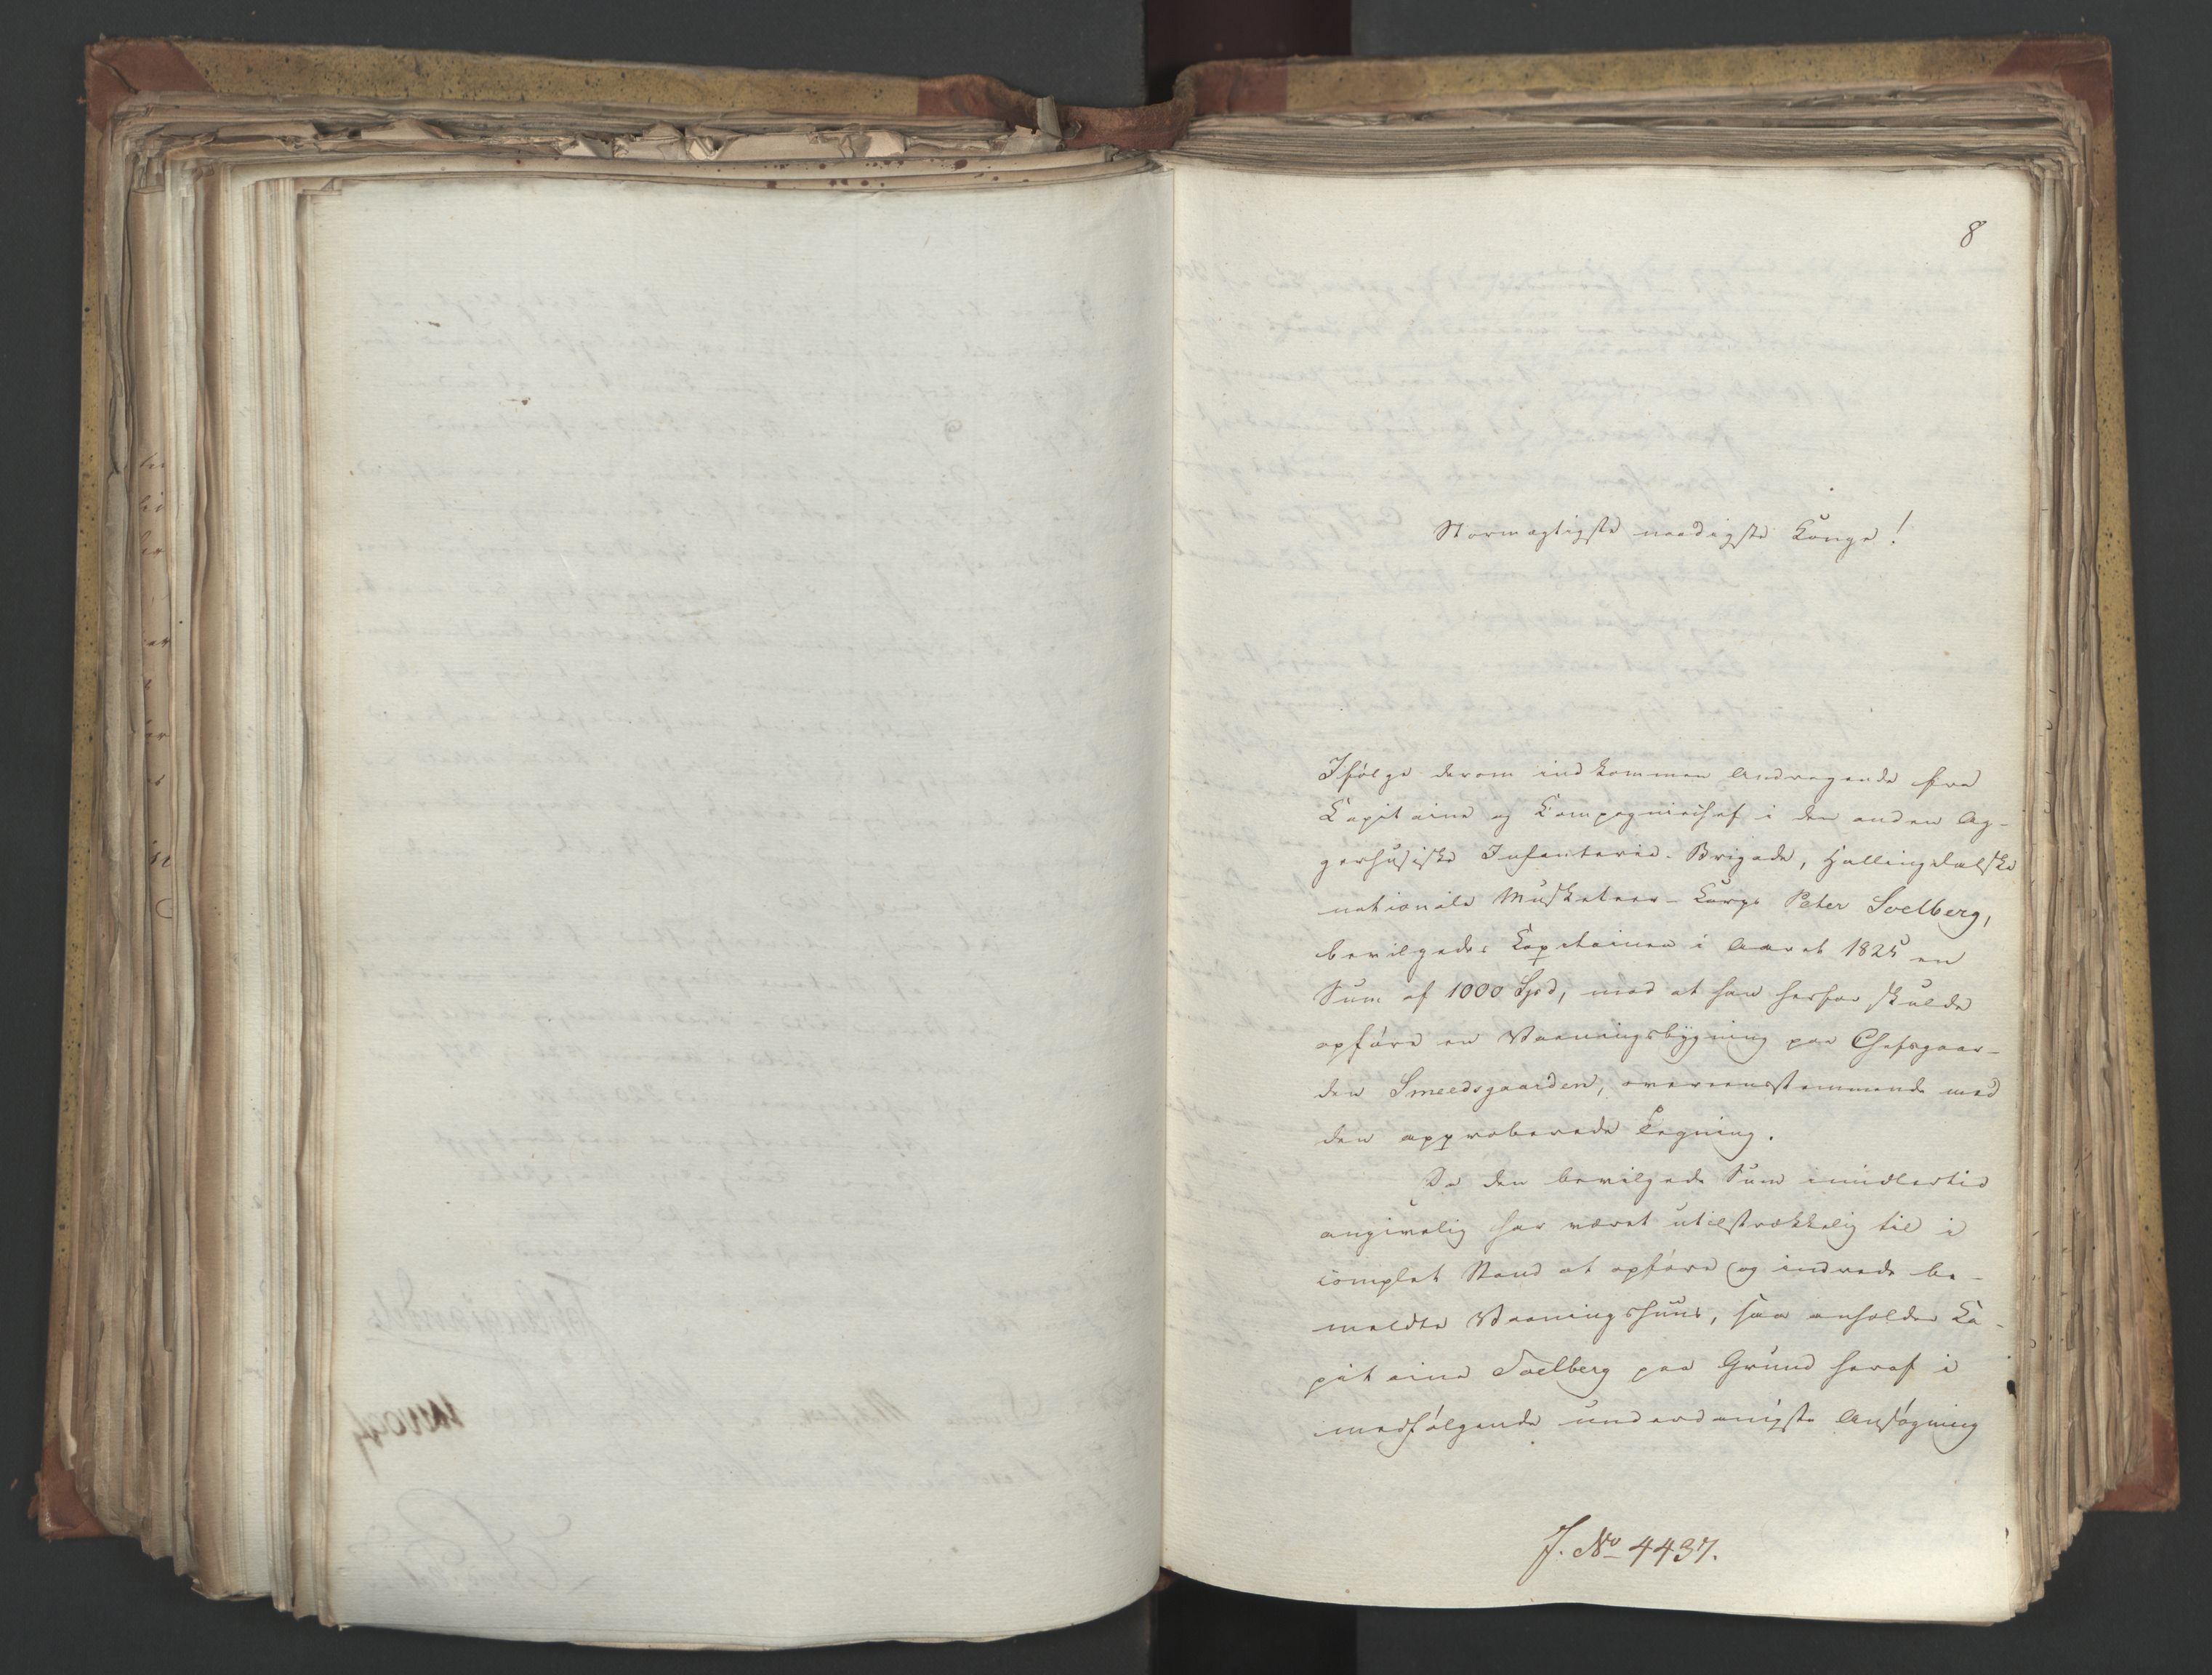 8
Stormægtigste naadigste Konge!
Ifølge derom indkommen Andragende fra
Capitaine og Kompagniechef i den anden Ag-
gerhusiske Infanterie-Brigade, Hallingdalske
nationale Musketeer-Corps Peter Soelberg,
bevilgedes Capitainen i Aaret 1825 en
Sum af 1000 Spd, mod at han herfor skulde
opføre en Vaaningsbygning paa Chefsgaar-
den Smeedsgaarden, overeensstemmende med
den approberede Tegning.
Da den bevilgede Sum imidlertid
angivelig har været utilstrækkelig til i
complet Stand at opføre og indrede be-
meldte Vaaningshuus, saa anholder Ca-
pitaine Soelberg paa Grund heraf i
medfølgende underdanigste Ansøgning
J. No 4437.